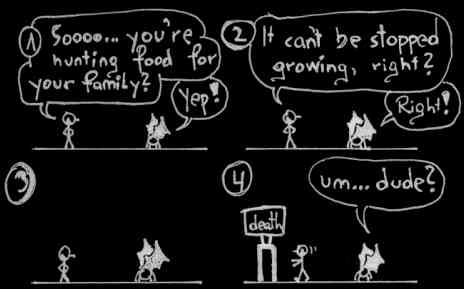 1 Soooo... you're
hunting food for
your family?
Yep!
2 It can't be stopped
growing, right?
Right!
3
4
um... dude?
death